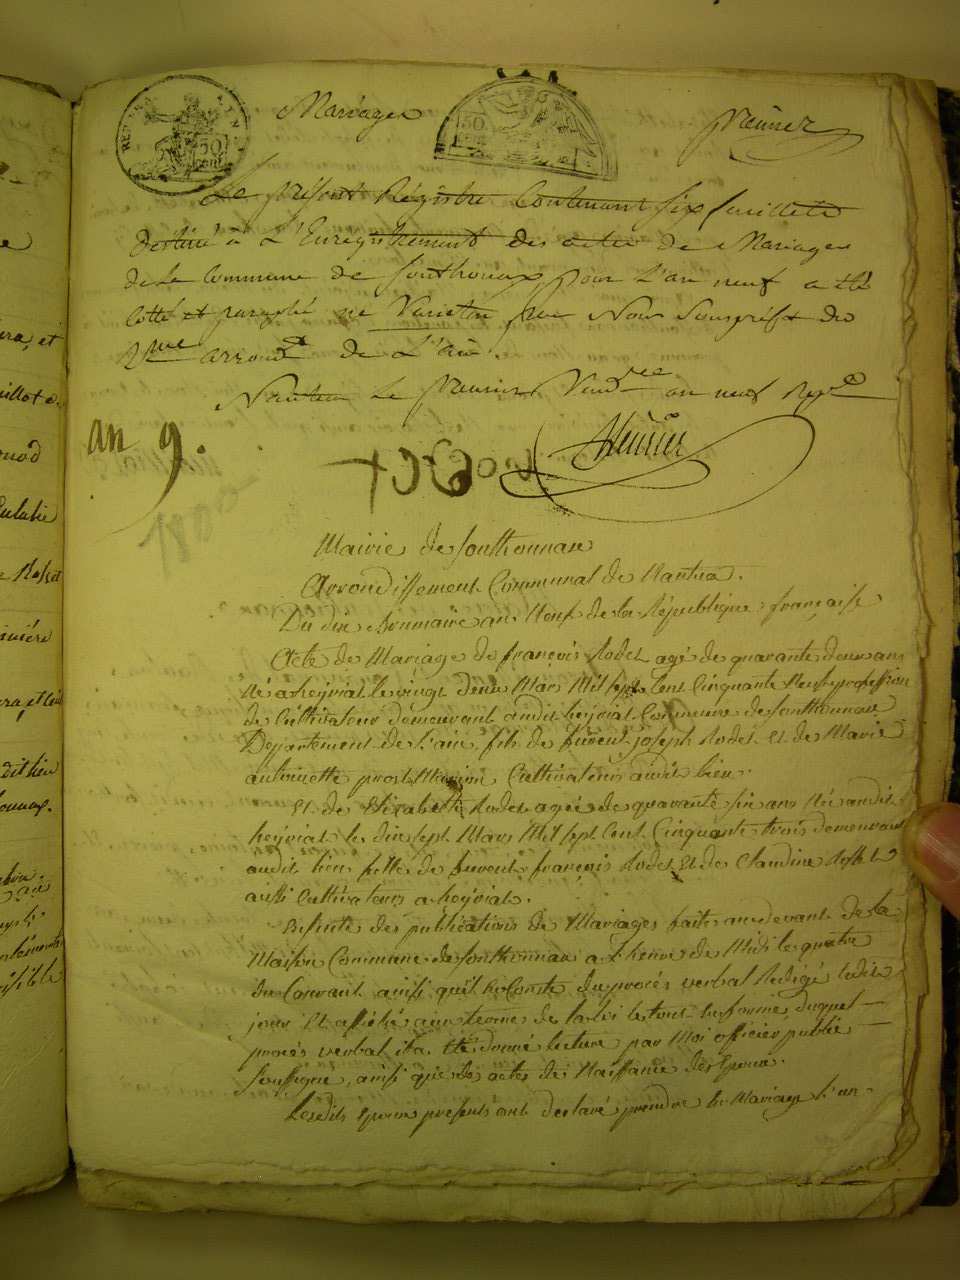 Mariages
premier
50
Le présent Régistre Contenant six feuillets
destiné à L'Enregistrement des actes de Mariages
de la Commune de Sonthonnax pour L'an neuf a été
cotté et paraphé ne Varietur par Nous Sousprefet du
arrond.t de L'ain.
Nantua Le premier Vend.re an neuf
an 9.
1800
Mairie de Sonthonnax
Arrondissement Communal de Nantua.
Du dix Brumaire an Neuf de la République française
Acte de Mariage de françois Rodet agé de quarante deux ans
Né a heyriat le vingt deux Mars Mil sept Cent Cinquante Neuf profession
de Cultivateur demeurant audit heyriat Commune de Sonthonnax
Departement de l'ain fils de fuvent joseph Rodet Et de Marie
antoinette prost Cultivateurs audit lieu.
Et de Elizabette Rodet agée de quarante six ans Née audit
heyriat le dix sept Mars Mil sept Cent Cinquante trois demeurant
audit lieu fille de fuvent françois Rodet Et de Claudine
aussi Cultivateurs a heyriat.
des publications de Mariages faite au devant de la
Maison Commune de Sonthonnax a L'heure de Midi le quatre
du Courant ainsi qu'il du procès verbal Redigé ledit
jour Et affiché aux termes de la loi le tout En forme duquel
procès verbal il a Eté donné lecture par Moi officier public
soussigné, ainsi que des actes de Naissance des Epoux.
Lesdits Epoux présents ont declaré prendre En Mariage l'un